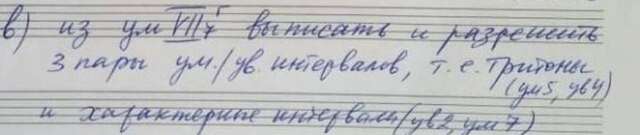 в) из ум VII7 выписать и разрешить
3 пары ум./ув. интервалов, т.е. тритоны
(ум5, ув4)
и характерные интервалы (ув2, ум7)